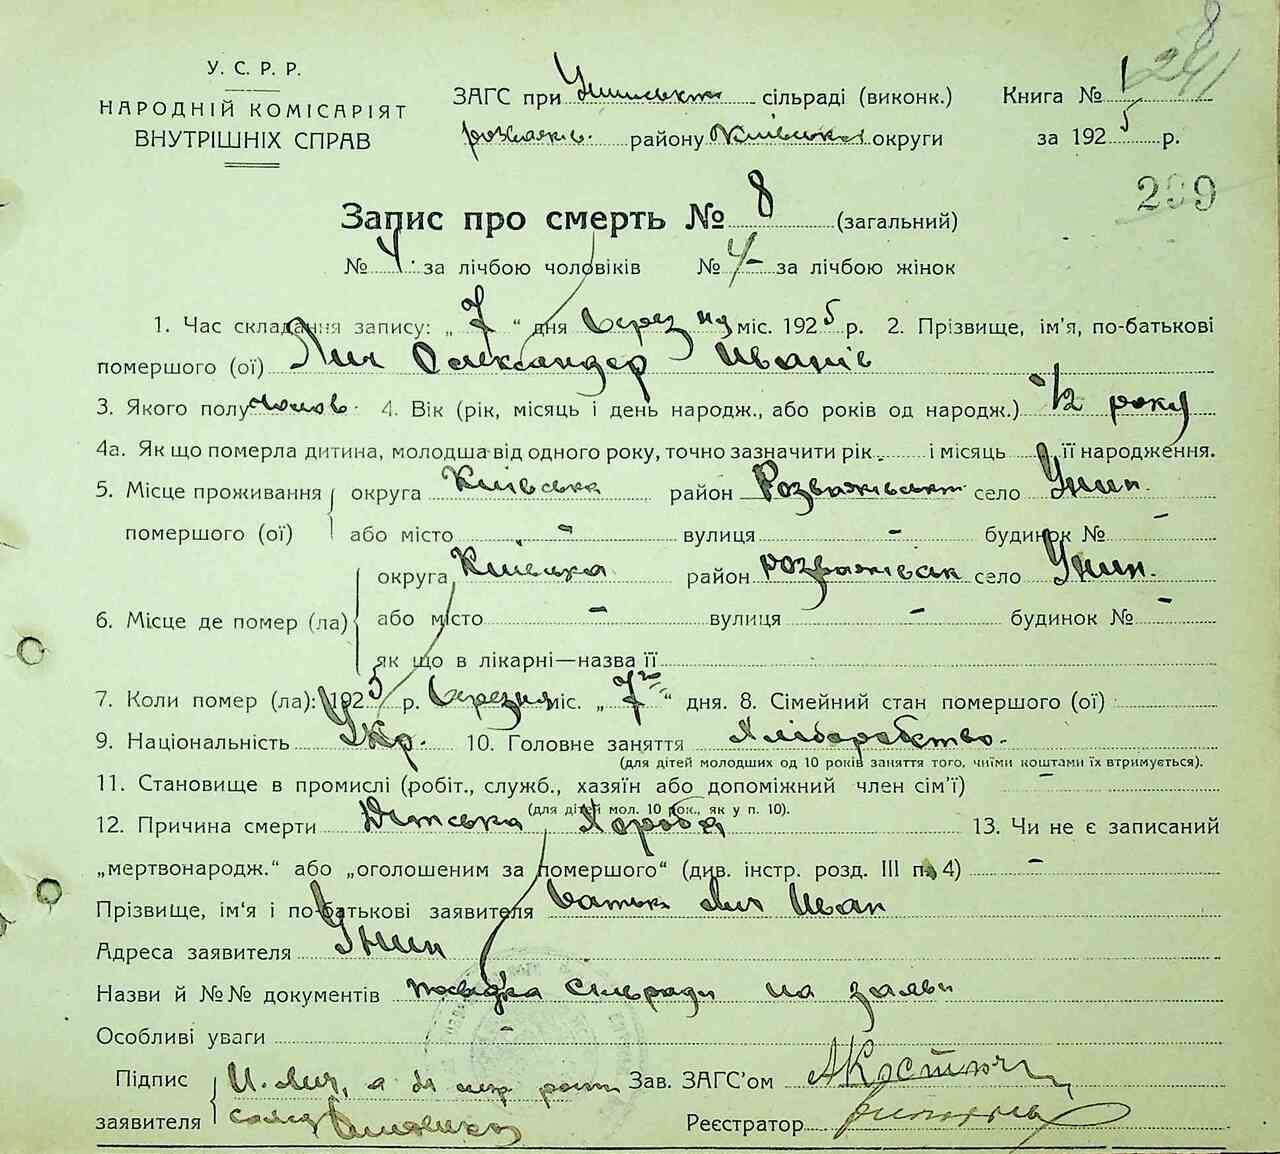 У. С. Р. Р.
НАРОДНІЙ КОМІСАРІЯТ
ВНУТРІШНІХ СПРАВ
ЗАГС при сільраді (виконк.)
району Київської округи
Книга № 1
за 1925 р.
8
241
299
Запис про смерть № 8 (загальний)
№ 4. за лічбою чоловіків № 4- за лічбою жінок
1. Час складання запису: „ 7 “ дня березня міс. 1925 р. 2. Прізвище, ім'я, по-батькові
помершого (ої) Лич Олександер Іванів
3. Якого полу чолов. 4. Вік (рік, місяць і день народж., або років од народж.) 1/2 року
4а. Як що померла дитина, молодша від одного року, точно зазначити рік і місяць її народження.
5. Місце проживання помершого (ої) округа Київська район Розважівськ село Унин.
або місто - вулиця - будинок № -
6. Місце де помер (ла) округа Київська район розважівськ село Унин.
або місто - вулиця - будинок № -
як що в лікарні—назва її
7. Коли помер (ла): 1925 р. березня міс. „ 7го “ дня. 8. Сімейний стан помершого (ої)
9. Національність Укр. 10. Головне заняття Хліборобство.
(для дітей молодших од 10 років заняття того, чиїми коштами їх втримується).
11. Становище в промислі (робіт., служб., хазяїн або допоміжний член сім'ї) -
(для дітей мол. 10 рок., як у п. 10).
12. Причина смерти Дітська Хороба 13. Чи не є записаний
„мертвонародж.“ або „оголошеним за помершого“ (див. інстр. розд. III п. 4) -
Прізвище, ім'я і по-батькові заявителя батько Лич Іван
Адреса заявителя Унин
Назви й №№ документів посвідка Сільради на заяви
Особливі уваги -
Підпис заявителя И. Лич, а за
Зав. ЗАГС'ом
Реєстратор